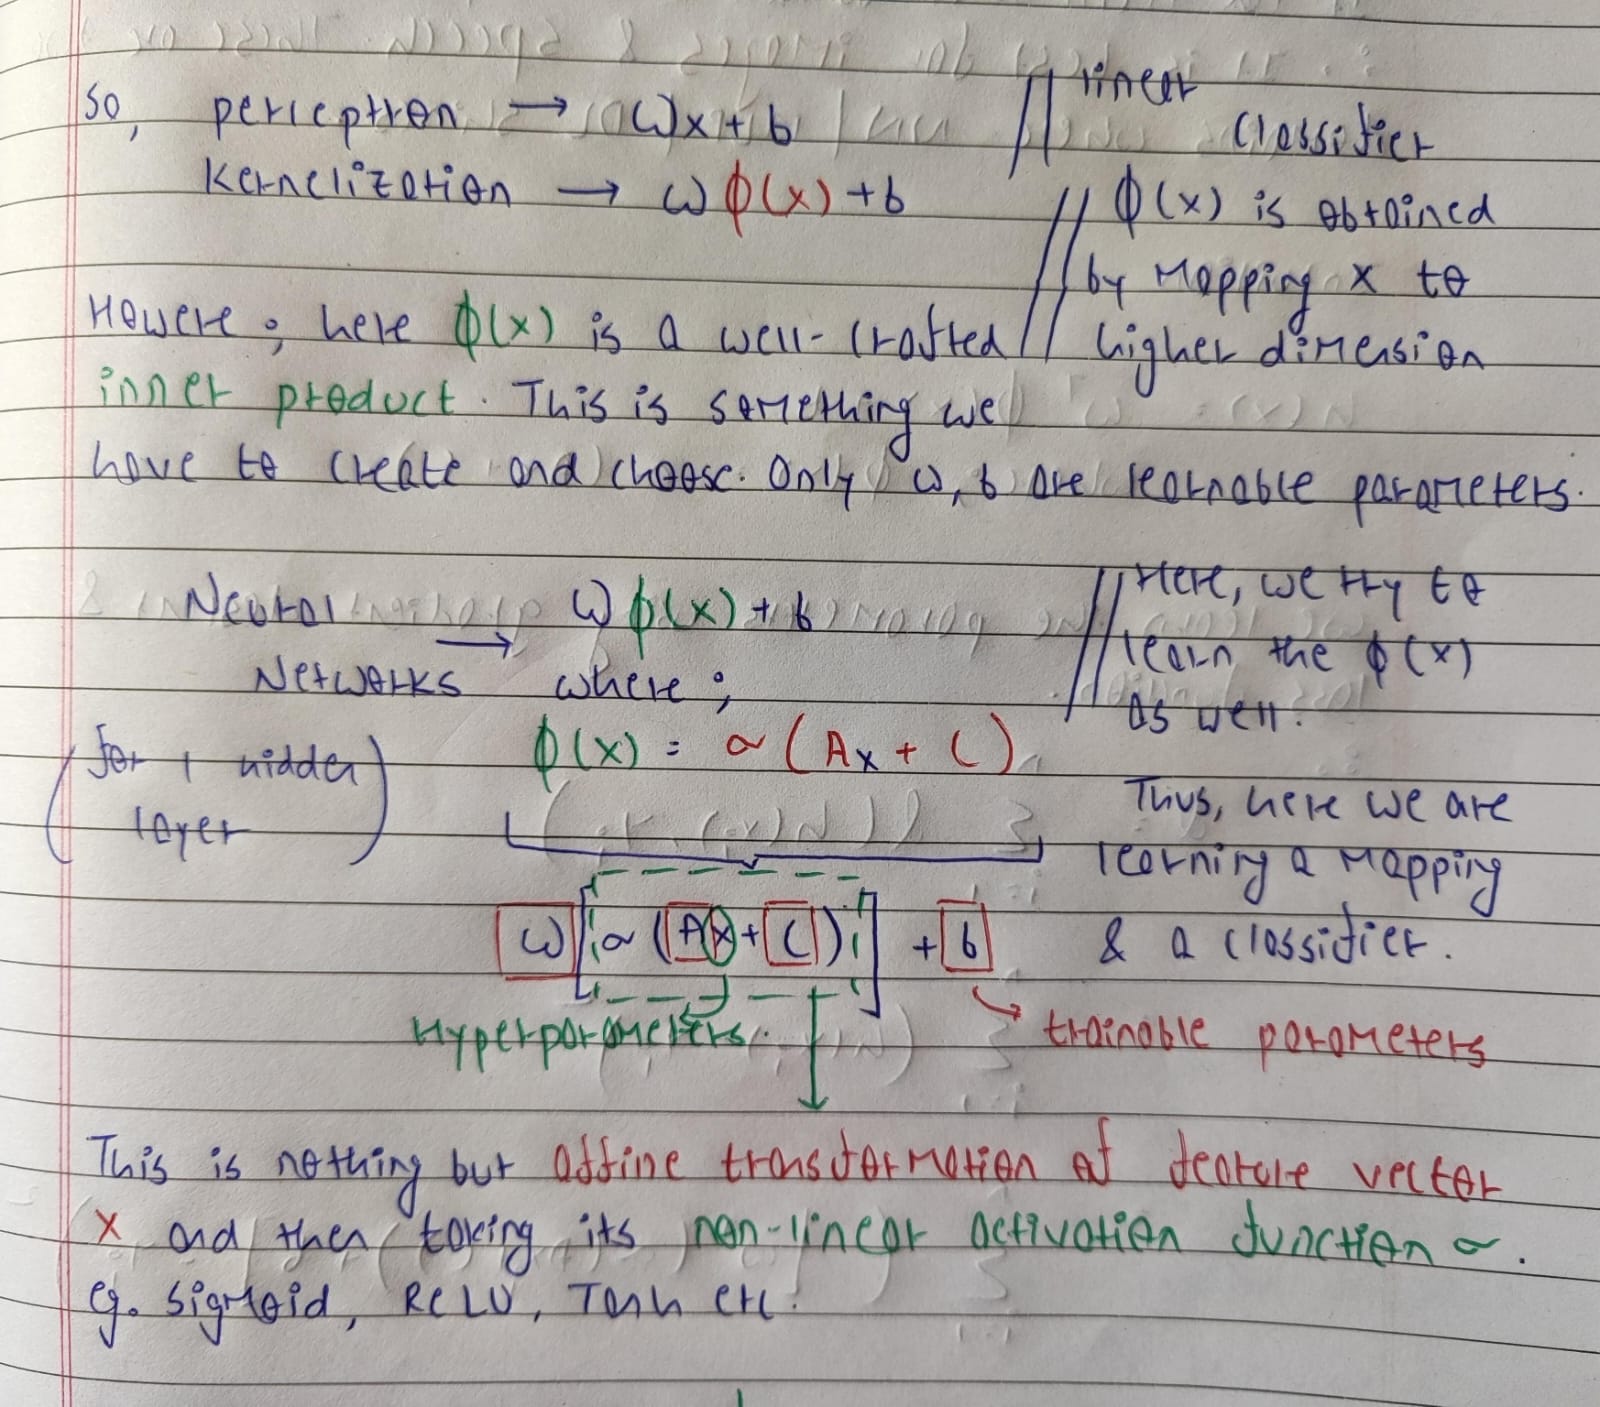 So, perceptron → ωx + b // linear classifier
Kernelization → ω ϕ(x) + b // ϕ(x) is obtained
by mapping x to
Howere; here ϕ(x) is a well-crafted // higher dimension
inner product. This is something we
have to create and choose. Only ω, b are learnable parameters.
Neural Networks → ω ϕ(x) + b // Here, we try to
where; learn the ϕ(x)
as well.
(for 1 hidden layer) ϕ(x) = σ(Ax + C)
Thus, here we are
learning a mapping
ω[σ(Ax + C)] + b & a classifier.
Hyperparameters. → trainable parameters
This is nothing but affine transformation of feature vector
x and then taking its non-linear activation function σ.
eg. sigmoid, ReLU, Tanh etc.